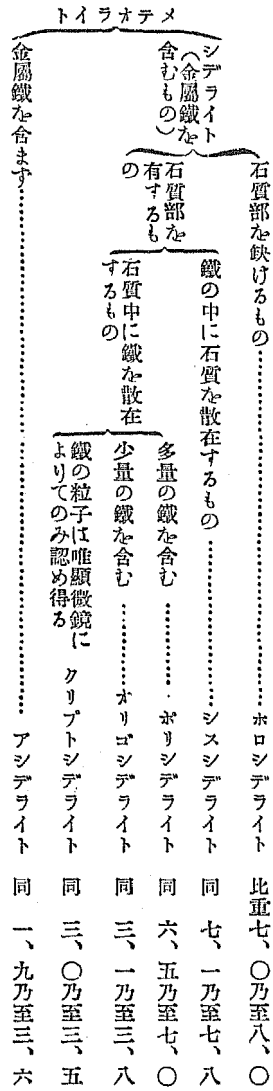 メテオライト
シデライト
(金屬鐵を
含むもの)
石質部を缺けるもの…………ホロシデライト 比重七、〇乃至八、〇
石質部を
有するも
の
鐵の中に石質を散在するもの…………シスシデライト 同 七、一乃至七、八
石質中に鐵を散在
するもの
多量の鐵を含む…………ポリシデライト 同 六、五乃至七、〇
少量の鐵を含む…………オリゴシデライト 同 三、一乃至三、八
鐵の粒子は唯顯微鏡に
よりてのみ認め得る クリプトシデライト 同 三、〇乃至三、五
金屬鐵を含まず…………アシデライト 同 一、九乃至三、六